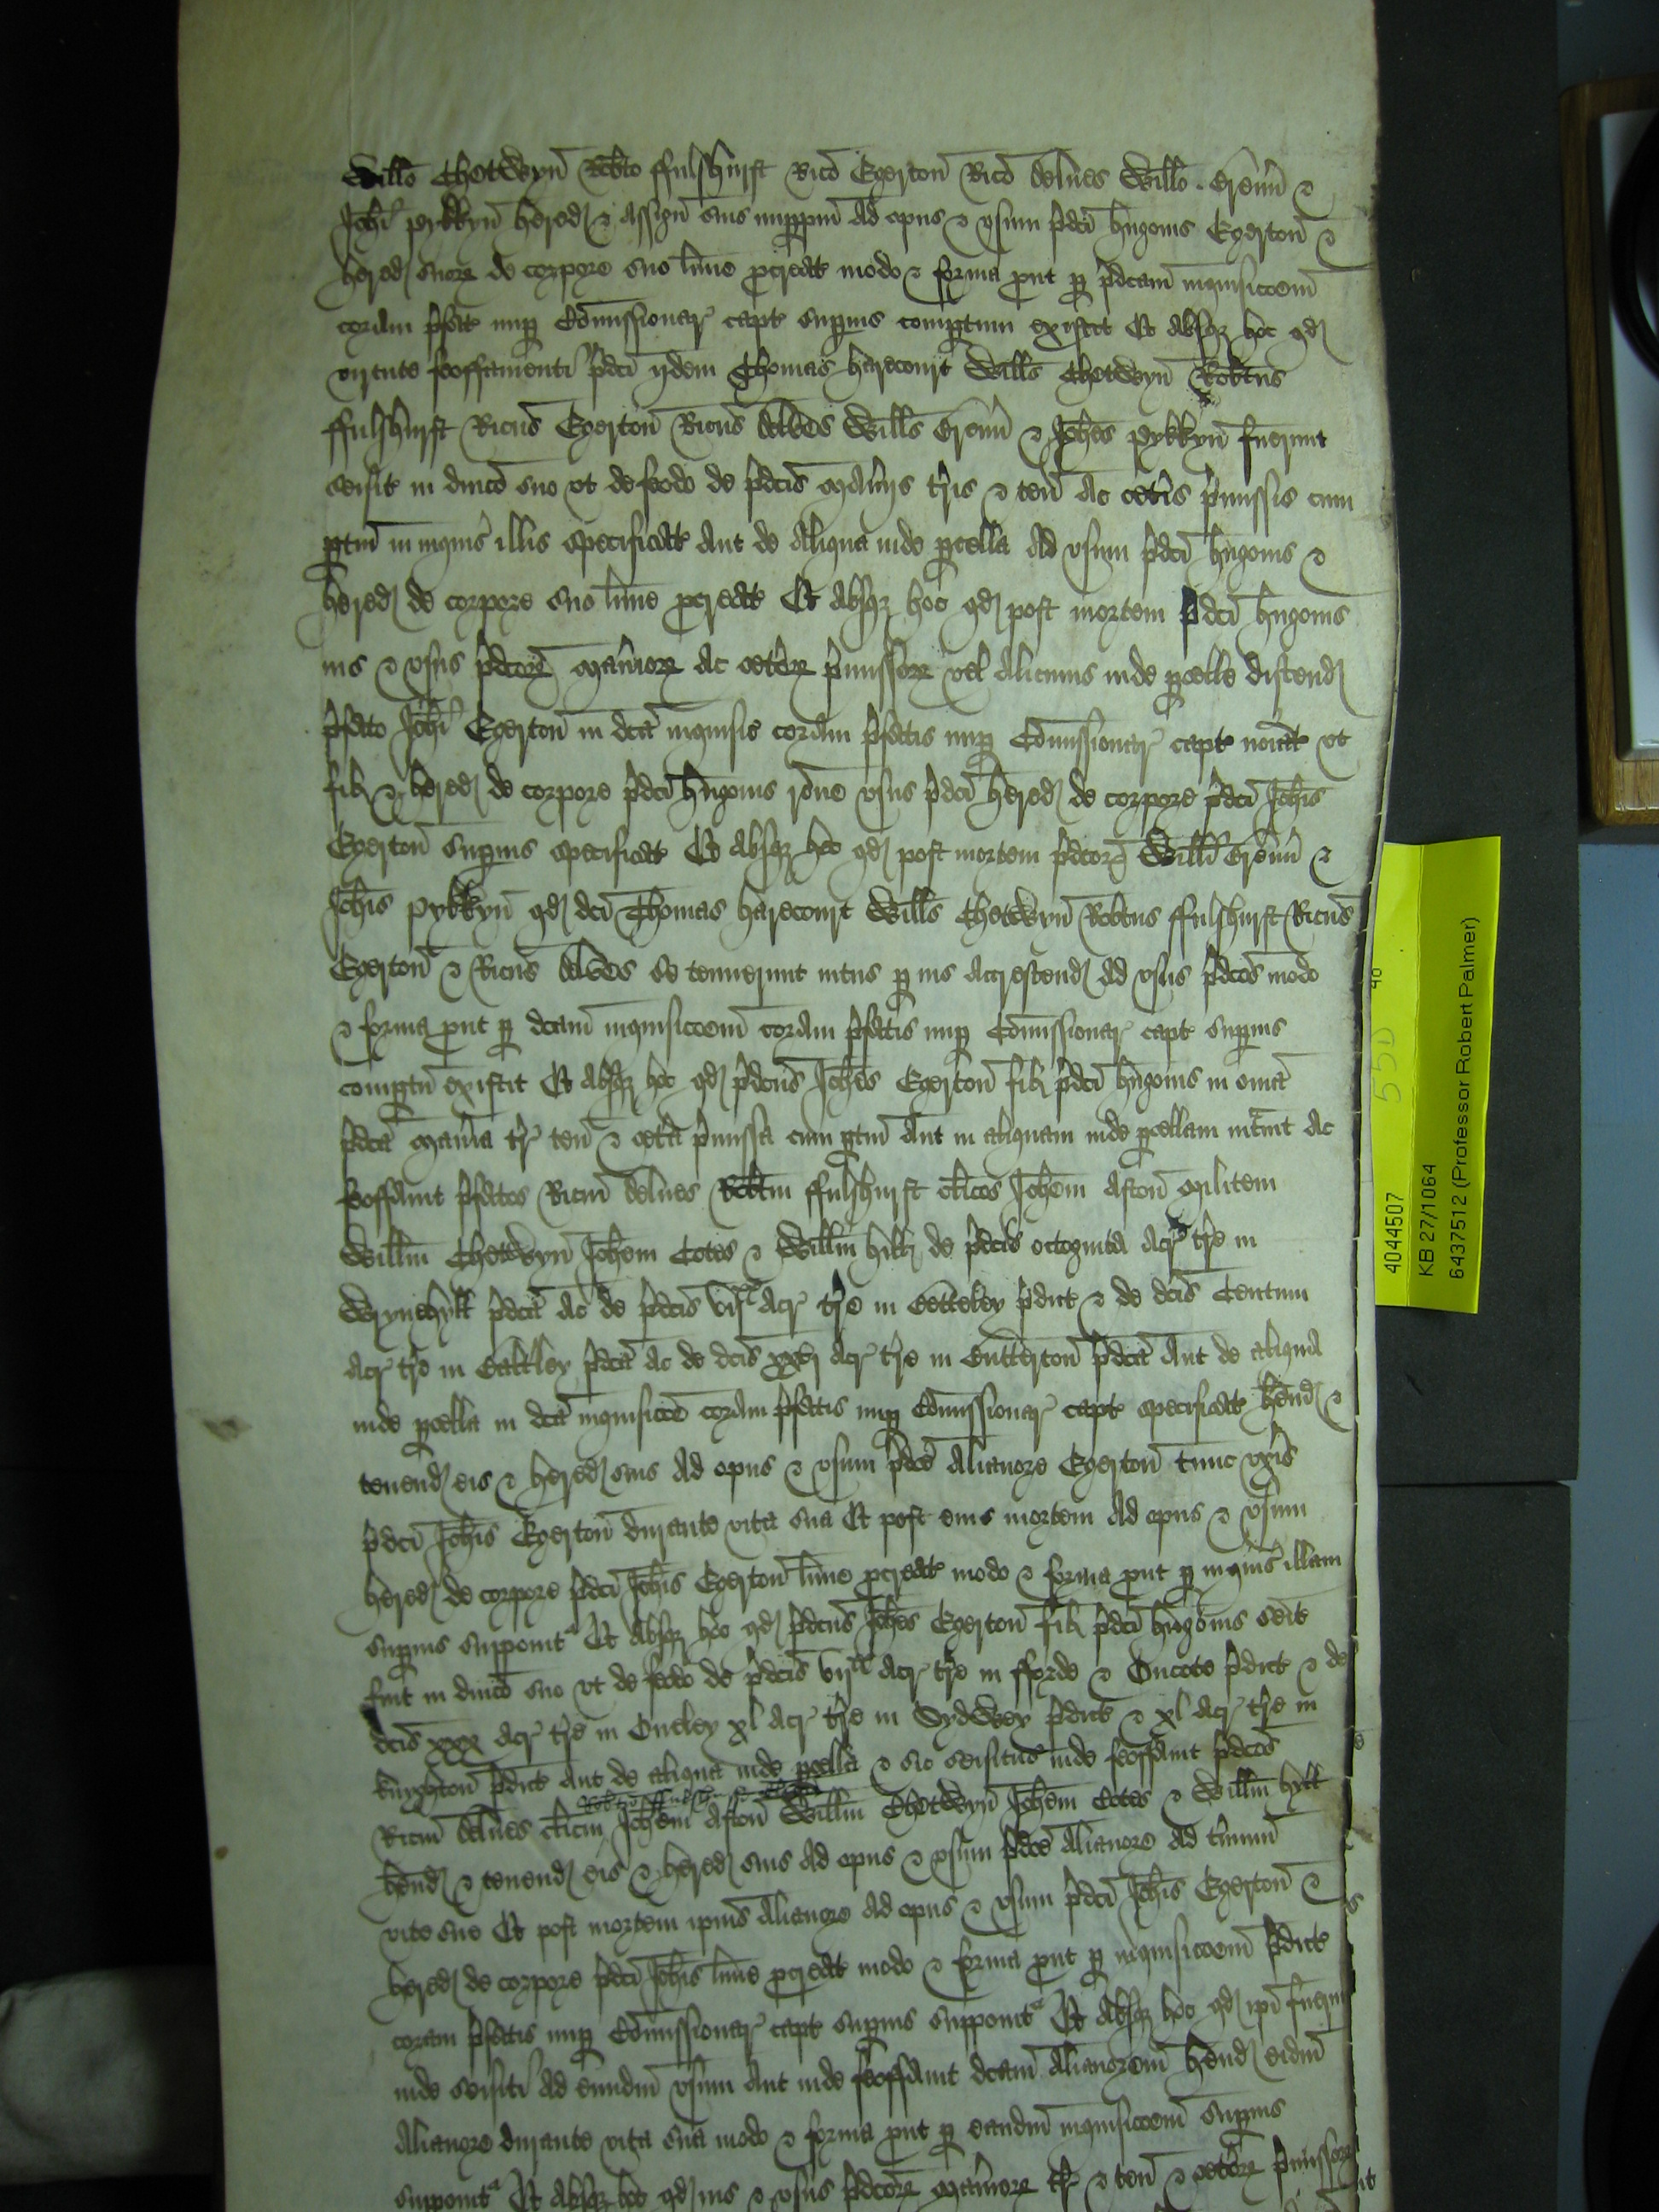 Willo Chetwyn Robto ffulshurst Rico Egerton Rico Delues Willo Eremn &
Johi Pykkyn hered & assign suis imppm ad opus & vsum pdci Hugonis Egerton &
hered suor de corpore suo ltime pcreat modo & forma put p pdcam inquisicoem
coram pfat nup Comissionar capt supius comptum existit Et absq hoc qd
virtute feoffamenti pdci ijdem Thomas Harecourt Wills Chetwyn Robtus
ffulshurst Ricus Egerton Ricus Delves Wills Eremn & Johes Pykkyn fuerunt
seisit in dnico suo vt de feodo de pdcis Manijs tris & ten ac cetis pmissis cum
ptin in inquis illis specificat aut de aliqua inde pcella ad vsum pdci Hugonis &
hered de corpore suo ltime pcreat Et absq hoc qd post mortem pdci Hugonis
ius & vsus pdcor Manior ac ceter pmissor vel alicuius inde pcelle discend
pfato Johi Egerton in dca inquisic coram pfatis nup Comissionar capt noiat vt
fil & hered de corpore pdci Hugonis rone vsus pdci hered de corpore pdci Johis
Egerton supius specificat Et absq hoc qd post mortem pdcor Willi Eremn &
Johis Pykkyn qd dci Thomas Harecourt Wills Chetwyn Robtus ffulshurst Ricus
Egerton & Ricus Delves se tenuerunt intus p ius accrescend ad vsus pdcos modo
& forma put p dcam inquisicoem coram pfatis nup Comissionar capt supius
comptu existit Et absq hoc qd pdcus Johes Egerton fil pdci Hugonis in omia
pdca Mania tr ten & ceta pmissa cum ptin aut in aliquam inde pcellam intrauit ac
feoffauit pfatos Ricm Delues Robtm ffulshurst clicos Johem Aston Militem
Willm Chetwyn Johem Cotes & Willm Hill de pdcis octoginta acr tre in
Wrynehyll pdca ac de pdcis vijxx acr tre in Betteley pdict & de dcis Centum
acr tre in pdca ac de dcis xxvj acr tre in pdca aut de aliqua
inde pcella in dca inquisicoe coram pfatis nup Comissionar capt specificat hend &
tenend eis & hered suis ad opus & vsum pdce Alianore Egerton tunc vxis
pdci Johis Egerton durante vita sua Et post eius mortem ad opus & vsum
hered de corpore pdci Johis Egerton ltime pcreat modo & forma put p inquis illam
supius supponit Et absq hoc qd pdcus Johes Egerton fil pdci Hugonis seit
fuit in dnico suo vt de feodo de pdcis vijxx acr tre in fforde & Oncote pdict & de
dcis xxx acr tre in Oneley xl acr tre in Sydwey pdict & xl acr tre in
Knyghton pdict aut de aliqua inde pcella & sic seisitus inde feoffauit pdcos
Ricm Delues clicm Johem Aston Willm Chetwyn Johem Cotes & Willm Hyll
hend & tenend eis & hered suis ad opus & vsum pdce Alianore ad tminu
vite sue Et post mortem ipius Alianore ad opus & vsum pdci Johis Egerton &
hered de corpore pdci Johis ltime pcreat modo & forma put p inquisicoem pdict
coram pfatis nup Comissionar capt supius supponit Et absq hoc qd ipi fuerunt
inde seisiti ad eundm vsum aut inde feoffauit dcam Alianorem hend eidm
Alianore durante vita sua modo & forma put p eandm inquisicoem supius
supponit Et absq hoc qd ius & vsus pdcor Manior tr & ten & ceter pmissor
4044507
KB 27/1064
6437512 (Professor Robert Palmer)
55D
40